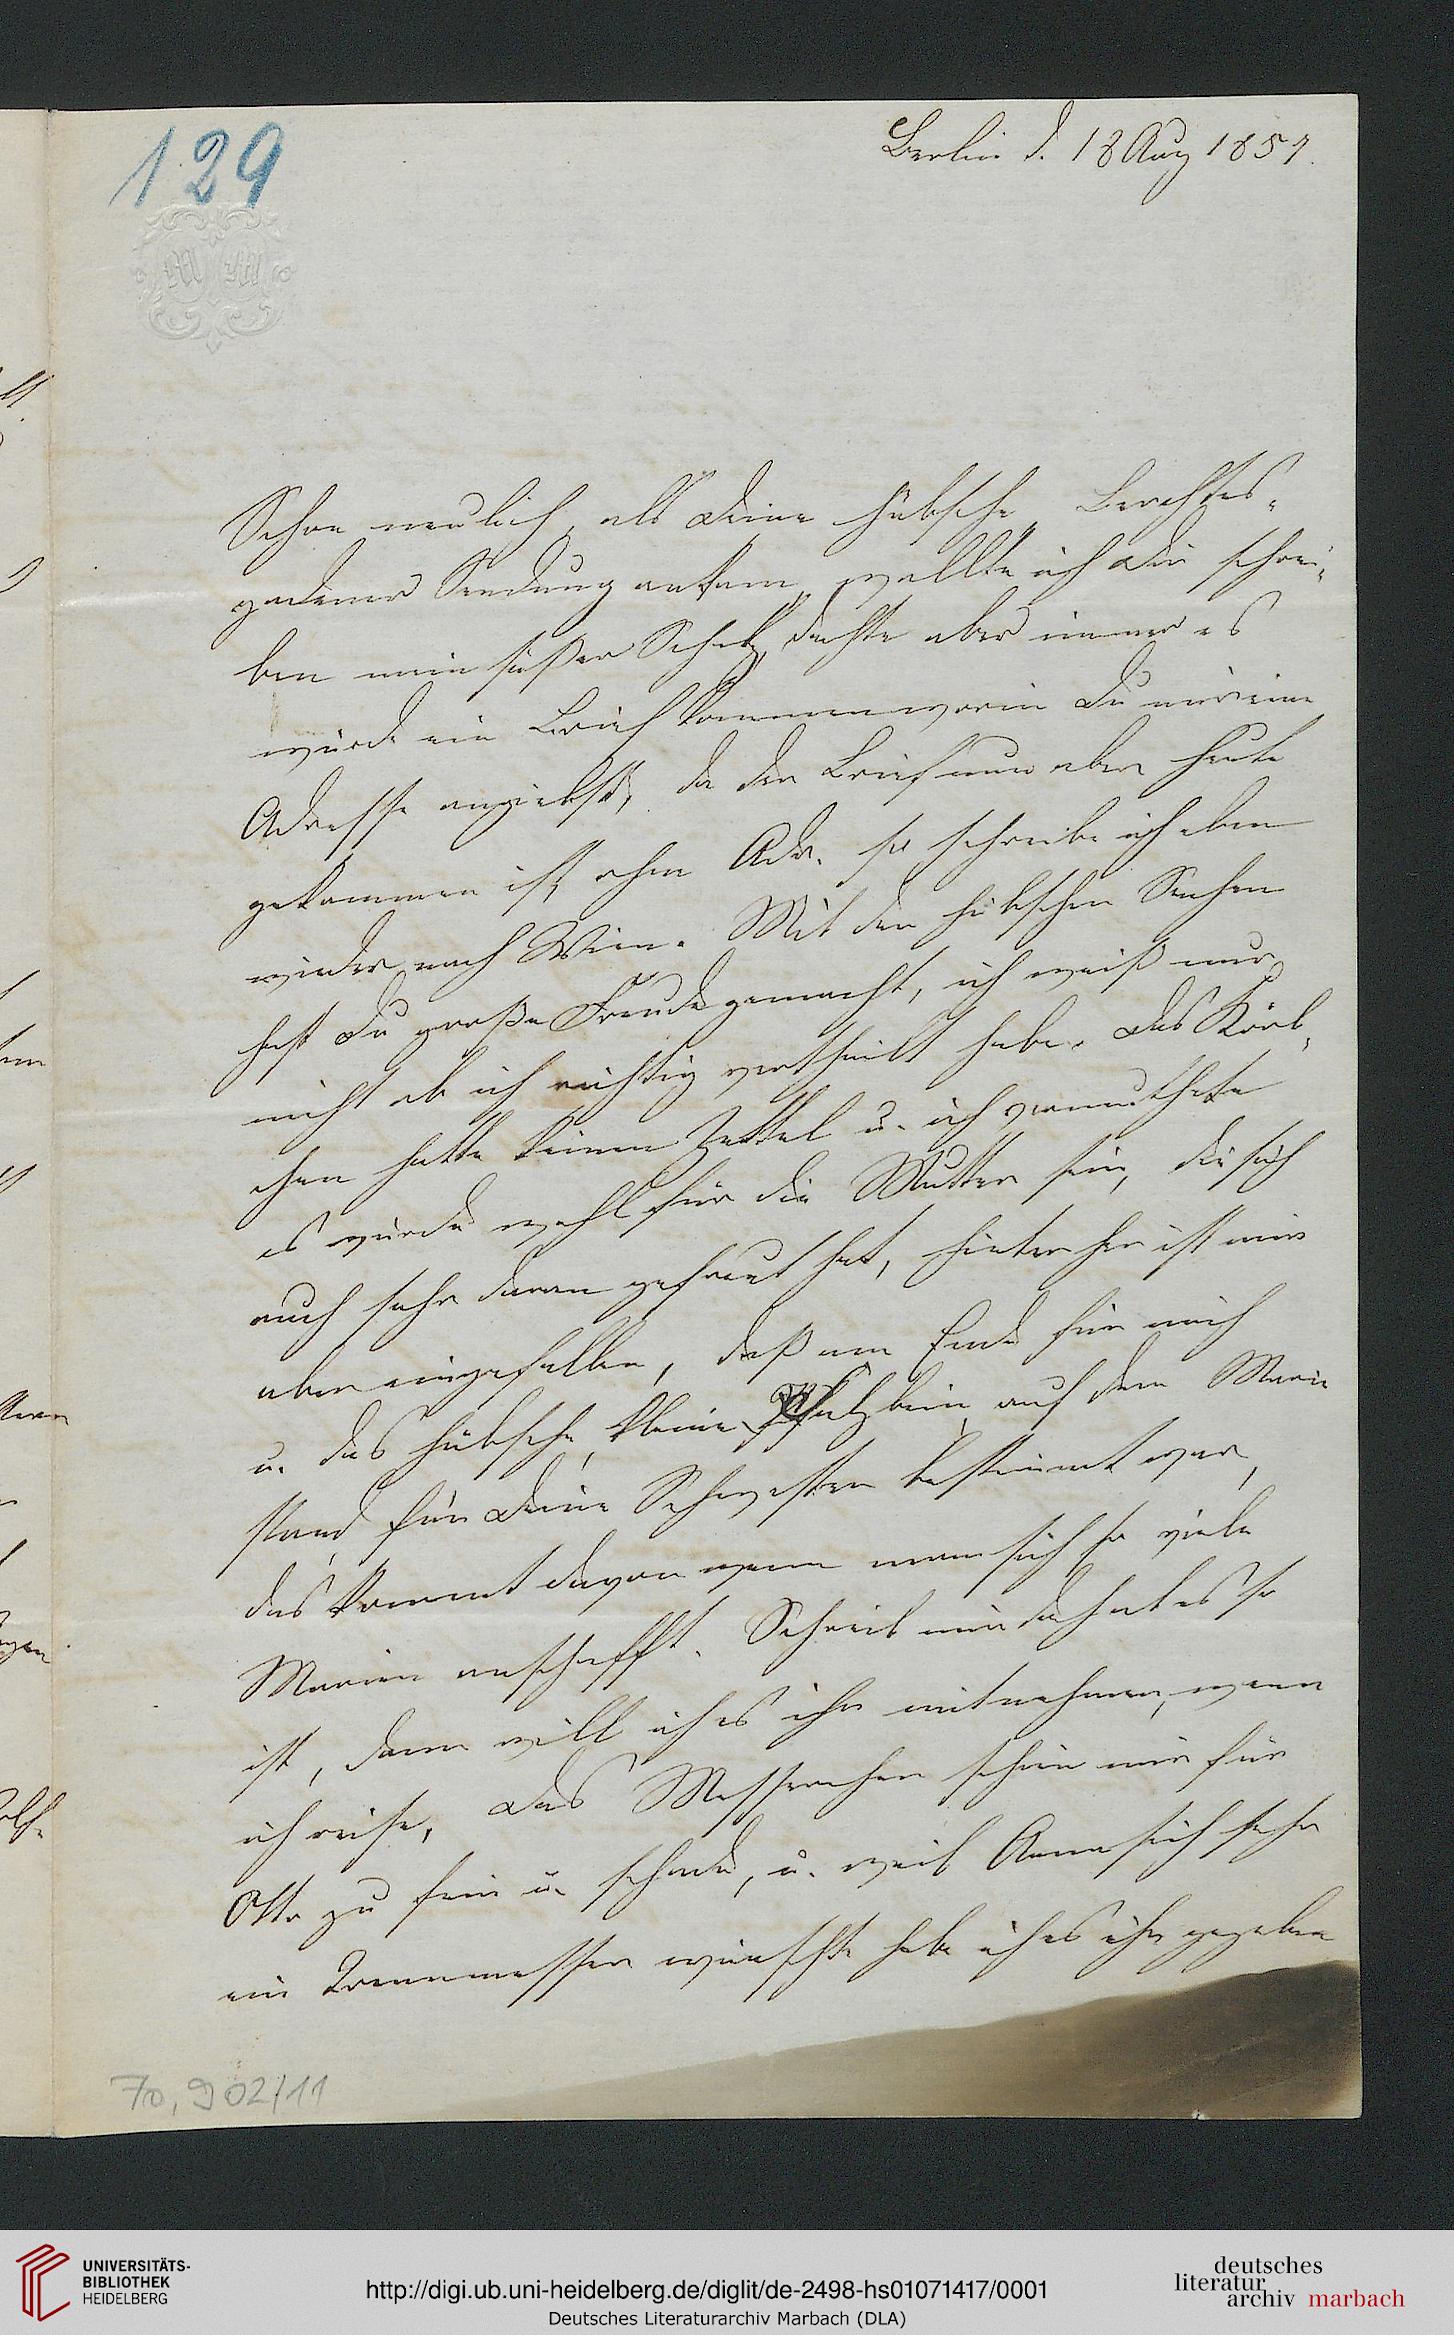 129
Berlin d. 18 Aug 1857.
MM
Schon neulich, als Deine hübsche Berchtes-
gadener Sendung ankam, wollte ich Dir schrei-
ben mein süßer Schatz, dachte aber immer es
würde ein Brief kommen worin Du mir eine
Adresse angiebst, da der Brief nun aber heute
gekommen ist, ohne Adr. so schreibe ich eben
wieder nach Wien. Mit den hübschen Sachen
hast Du große Freude gemacht, ich weiß nur
nicht ob ich richtig vertheilt habe. Das Körb-
chen hatte keinen Zettel u. ich vermuthete
es würde wohl für die Mutter sein, die sich
auch sehr daran gefreut hat, hinterher ist mir
aber eingefallen, daß am Ende für mich
u. das hübsche kleine Falzbein auf dem Marie
stand für Deine Schwester bestimmt war,
das kommt davon wenn man sich so viele
Marien anschafft. Schreib mir doch ob es so
ist, dann will ich es ihr mitnehmen, wenn
ich reise. Das Messerchen schien mir für
Otto zu fein u. schade, u. weil Anna sich sehr
ein Trennmesser wünschte habe ich es ihr gegeben
70,902/11
UNIVERSITÄTS-
BIBLIOTHEK
HEIDELBERG
http://digi.ub.uni-heidelberg.de/diglit/de-2498-hs01071417/0001
Deutsches Literaturarchiv Marbach (DLA)
deutsches
literatur
archiv marbach